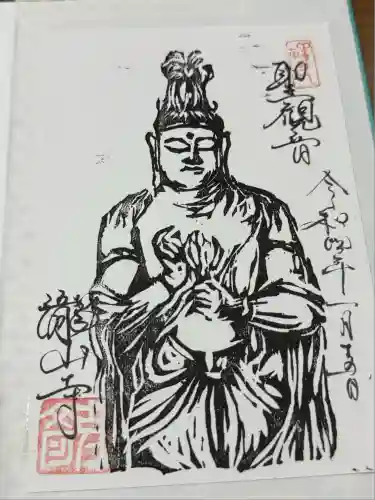 聖観音
令和四年一月十五日
龍山寺